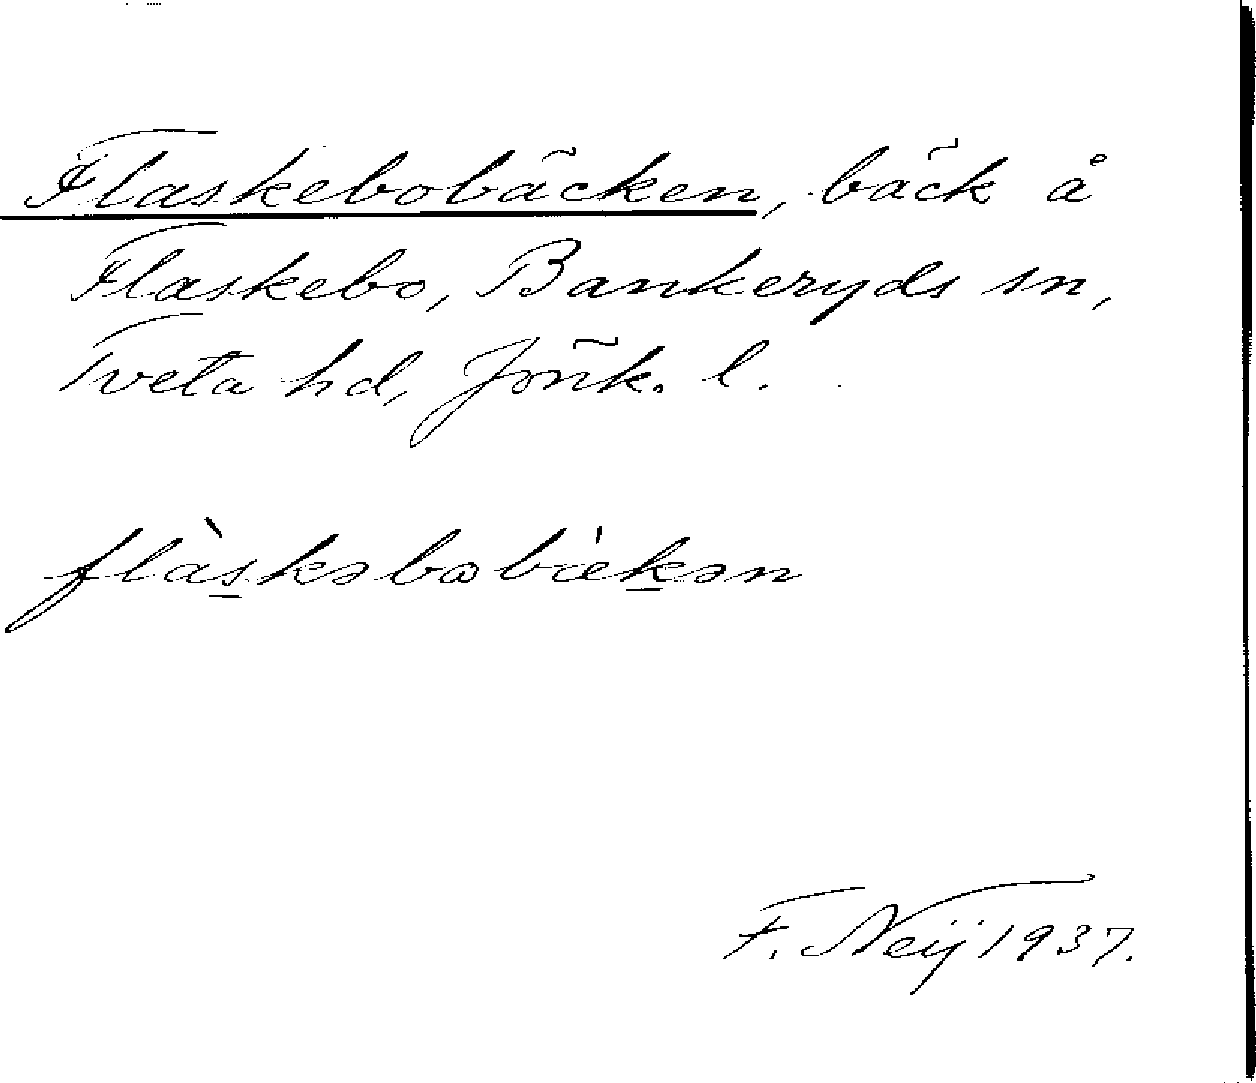 Flaskebobäcken, bäck å
Flaskebo, Bankeryds sn,
Tveta hd, Jönk. l.
flàskəbωbækən
F. Neij 1937.